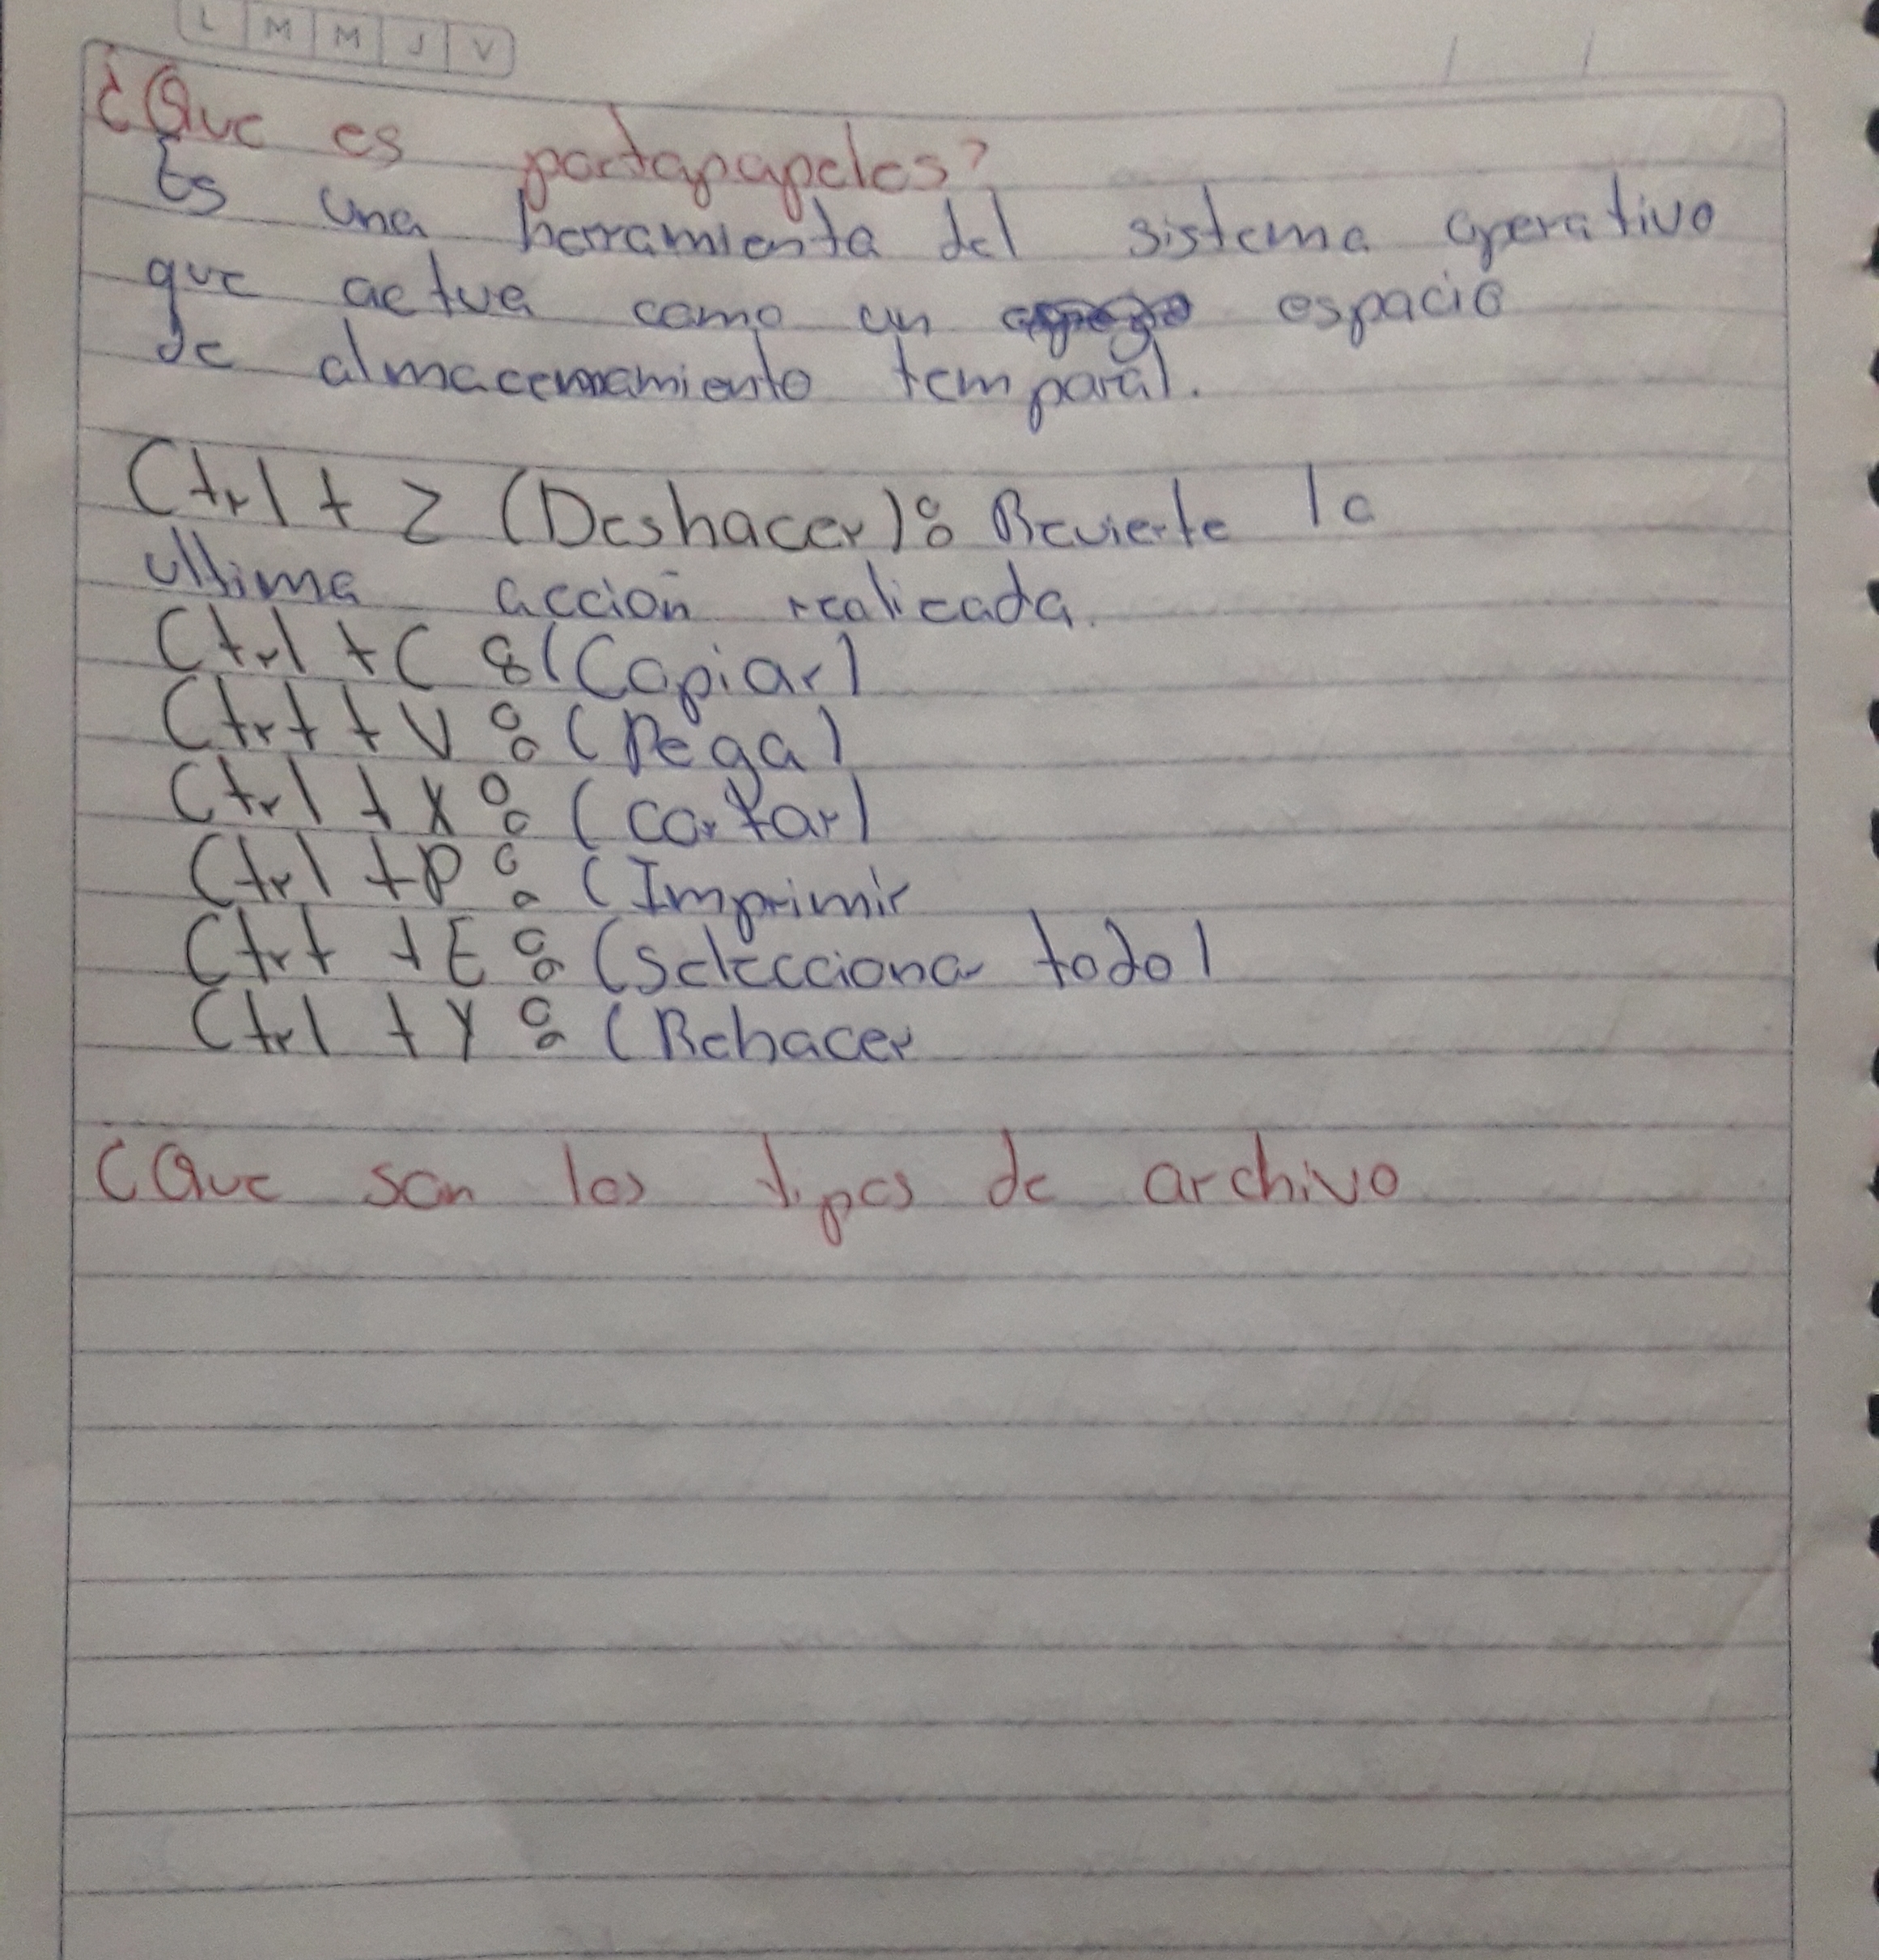 L M M J V
¿Que es portapapeles?
Es una herramienta del sistema operativo
que actua como un espacio
de almacenamiento temporal.
Ctrl + Z (Deshacer): Revierte la
ultima acción realicada.
Ctrl + C : (Copiar)
Ctrt + V : (Pega)
Ctrl + X : (cortar)
Ctrl + P : (Imprimir
Ctrt + E : (Selecciona todo)
Ctrl + Y : (Rehacer
¿Que son los tipos de archivo